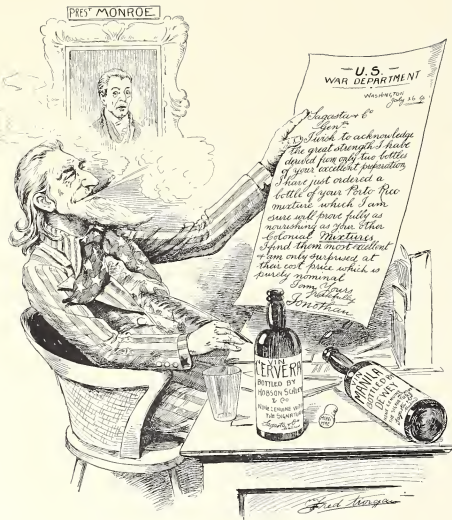 PREST MONROE
U.S.
WAR DEPARTMENT
WASHINGTON
July 26
Sagasta & Co
Gents
I wish to acknowledge
the great strength I have
derived from only two bottles
of your excellent preparation
I have just ordered a
bottle of your Porto Rico
mixture which I am
sure will prove fully as
nourishing as your other
Colonial Mixtures,
I find them most excellent
& am only surprised at
their cost price which is
purely nominal
I am Yours
Gratefully
Jonathan
VIN
CERVERA
BOTTLED BY
HOBSON SCHLEY
& CO
NONE GENUINE WITHOUT
THE SIGNATURE
Sagasta & Co
MANILA
BOTTLED BY
DEWEY
Fred Morgan